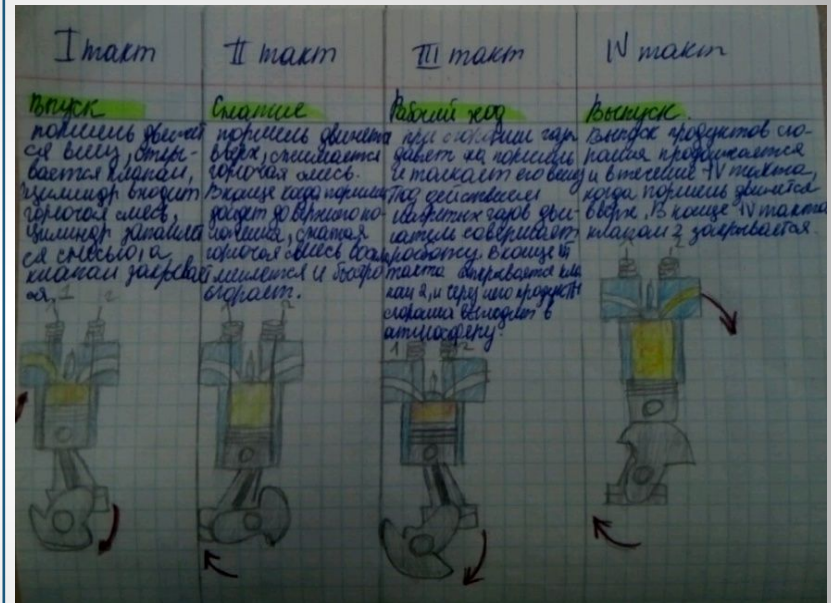 I такт
Впуск
поршень движет
ся вниз, откры-
вается клапан,
цилиндр входит
горючая смесь,
цилиндр заполняет
ся смесью, а
клапан закрывает
ся.
1 2
II такт
Сжатие
поршень движется
вверх, сжимается
горючая смесь.
В конце когда поршень
дойдет до верхнего по-
ложения, сжатая
горючая смесь
и быстро
сгорает.
III такт
Рабочий ход
при сгорании газ
давит на поршень
и толкает его вниз
Под действием
нагретых газов дви-
гатель совершает
работу. В конце III
такта открывается кла
пан 2, и через него продукты
сгорания выходят в
атмосферу.
1 2
IV такт
Выпуск.
Выпуск продуктов сго-
рания продолжается
и в течение IV такта,
когда поршень движется
вверх. В конце IV такта
клапан 2 закрывается.